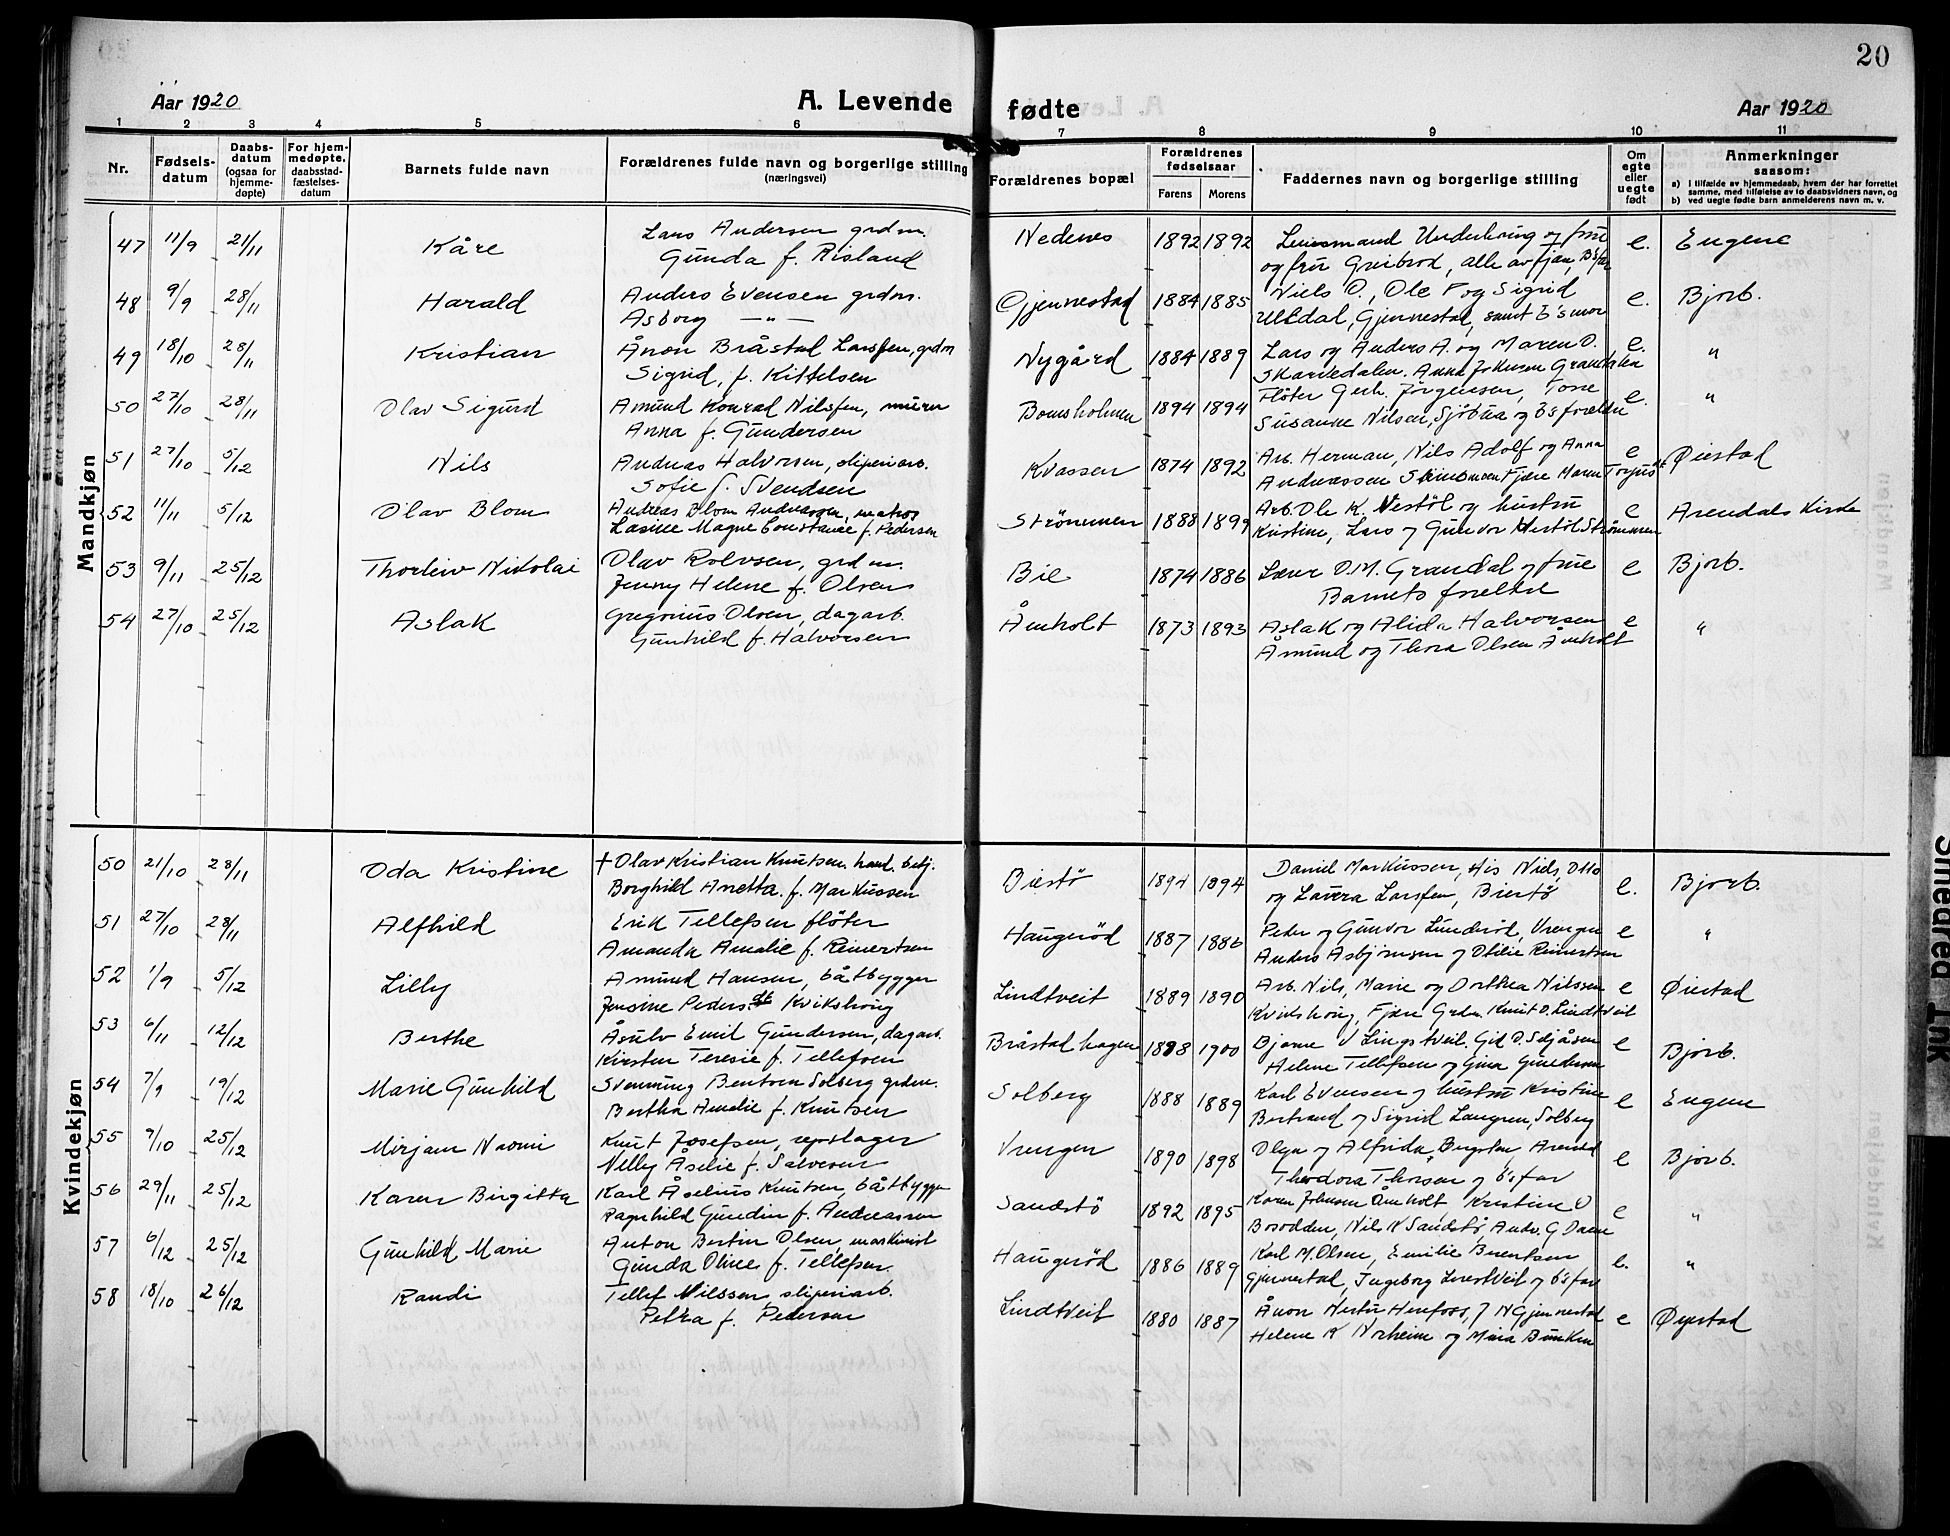 20
Aar 1920
A. Levende fødte
Aar 1920
1 2 3 4 5 6 7 8 9 10 11
Nr.
Fødsels-datum
Daabs-datum (ogsaa for hjemme-døpte)
For hjem-medøpte. daabsstad-fæstelses-datum
Barnets fulde navn
Forældrenes fulde navn og borgerlige stilling (næringsvei)
Forældrenes bopæl
Forældrenes fødselsaar
Farens Morens
Faddernes navn og borgerlige stilling
Om egte eller uegte født
Anmerkninger saasom:
a) i tilfælde av hjemmedaab, hvem der har forrettet samme, med tilføielse av to daabsvidners navn, og
b) ved uegte fødte barn anmelderens navn m. v.
Mandkjøn
47 11/9 21/11 Kåre Lars Andersen grdm. Nedenes 1892 1892 og frue e. Eugene
Gunda f. Risland og fru alle av Fjære, B's far
48 9/9 28/11 Harald Anders Evensen grdm. Gjennestad 1884 1885 Niels O., Ole F og Sigrid e. Bjorb.
Asborg —"— Uldal, Gjennestad, samt b's mor
49 18/10 28/11 Kristian Ånon Bråstad Larssen, grdm Nygård 1884 1889 Lars og Anders A. og Maren O. e. "
Sigrid, f. Kittelsen Skarvedalen. Anna Johnsen
50 27/10 28/11 Olav Sigurd Amund Konrad Nilssen, murer Bomsholmen 1894 1894 Fløter Gerh. Jørgensen, Tone e. "
Anna f. Gundersen Susanne Nilsen, Sjøbua og b's foreldre
51 27/10 5/12 Nils Andreas Halvorsen, sliperiarb. Kvassen 1874 1892 Arb. Herman, Nils Adolf og Anna e Øiestad
Sofie f. Svendsen Andreassen Fjære Maren
52 11/11 5/12 Olav Blom Andreas Blom Andreassen, matros Strømmen 1888 1899 Arb. Ole K. Nestøl og hustru e Arendals Kirke
Lasine Magne Constance f. Pedersen Kristine, Lars og Gunvor Strømmen
53 9/11 25/12 Thorleiv Nikolai Olav Rolvsen, grdm. Bie 1874 1886 Lærer O. M. Grandal og frue e Bjorb.
Jenny Helene f. Olsen Barnets foreldre
54 27/10 25/12 Aslak Gregorius Olsen, dagarb. Åmholt 1873 1893 Aslak og Alida Halvorsen e "
Gunhild f. Halvorsen Åmund og Thora Olsen Åmholt
Kvindekjøn
50 21/10 28/11 Oda Kristine † Olav Kristian Knutsen hand. betj. Biestø 1894 1894 Daniel Markussen, His Niels, Otto e. Bjorb.
Borghild Anetta f. Markussen og Laura Larssen, Biestø
51 27/10 28/11 Alfhild Erik Tellefsen fløter Haugerød 1887 1886 Peder og Gunvor Lunderød, Vrengen e "
Amanda Amalie f. Reinertsen Anders Asbjørnsen og Otilie Reinertsen
52 1/9 5/12 Lilly Amund Hansen, båtbygger Lindtveit 1889 1890 Arb. Nils, Marie og Dorthea Nilssen e Øiestad
Jensine Pedersdt. Kvikshaug Kvikshaug, Fjære Grdm. Knut O. Lindtveit
53 6/11 12/12 Berthe Åsulv Emil Gundersen, dagarb. Bråstad hagen 1898 1900 Bjarne e Bjorb.
Kirsten Teresie f. Tellefsen Helene Tellefsen og Gina Gundersen
54 7/9 19/12 Marie Gunhild Svenning Bentsen Solberg grdm. Solberg 1888 1889 Karl Evensen og hustru Kristine e Eugene
Bertha Amalie f. Knutsen Bertrand og Sigrid Langren, Solberg
55 9/10 25/12 Mirjam Naomi Knut Josefsen, repslager Vrengen 1890 1898 Olga og Alfrida Bergsten Arendal e Bjorb.
Nelly Åselie f. Salvesen Theodora Thorsen og b's far
56 29/11 25/12 Karen Birgitta Karl Åselius Knutsen, båtbygger Sandstø 1892 1895 Karen Johnsen Åmholt, Kristine O e "
Ragnhild Gundine f. Andreassen Bosodden, Nils N Sandstø, Andr. G
57 6/12 25/12 Gunhild Marie Anton Bertin Olsen, maskinist Haugerød 1886 1889 Karl M. Olsen, Emilie Berntsen e. "
Gunda Oline f. Tellefsen. Gjennestad, Ingeborg og b's far
58 18/10 26/12 Randi Tellef Nilssen sliperiarb. Lindtveit 1880 1887 Ånon N Gjennestad e Øyestad
Petra f. Pedersen Helene K Norheim og
Smeared Ink